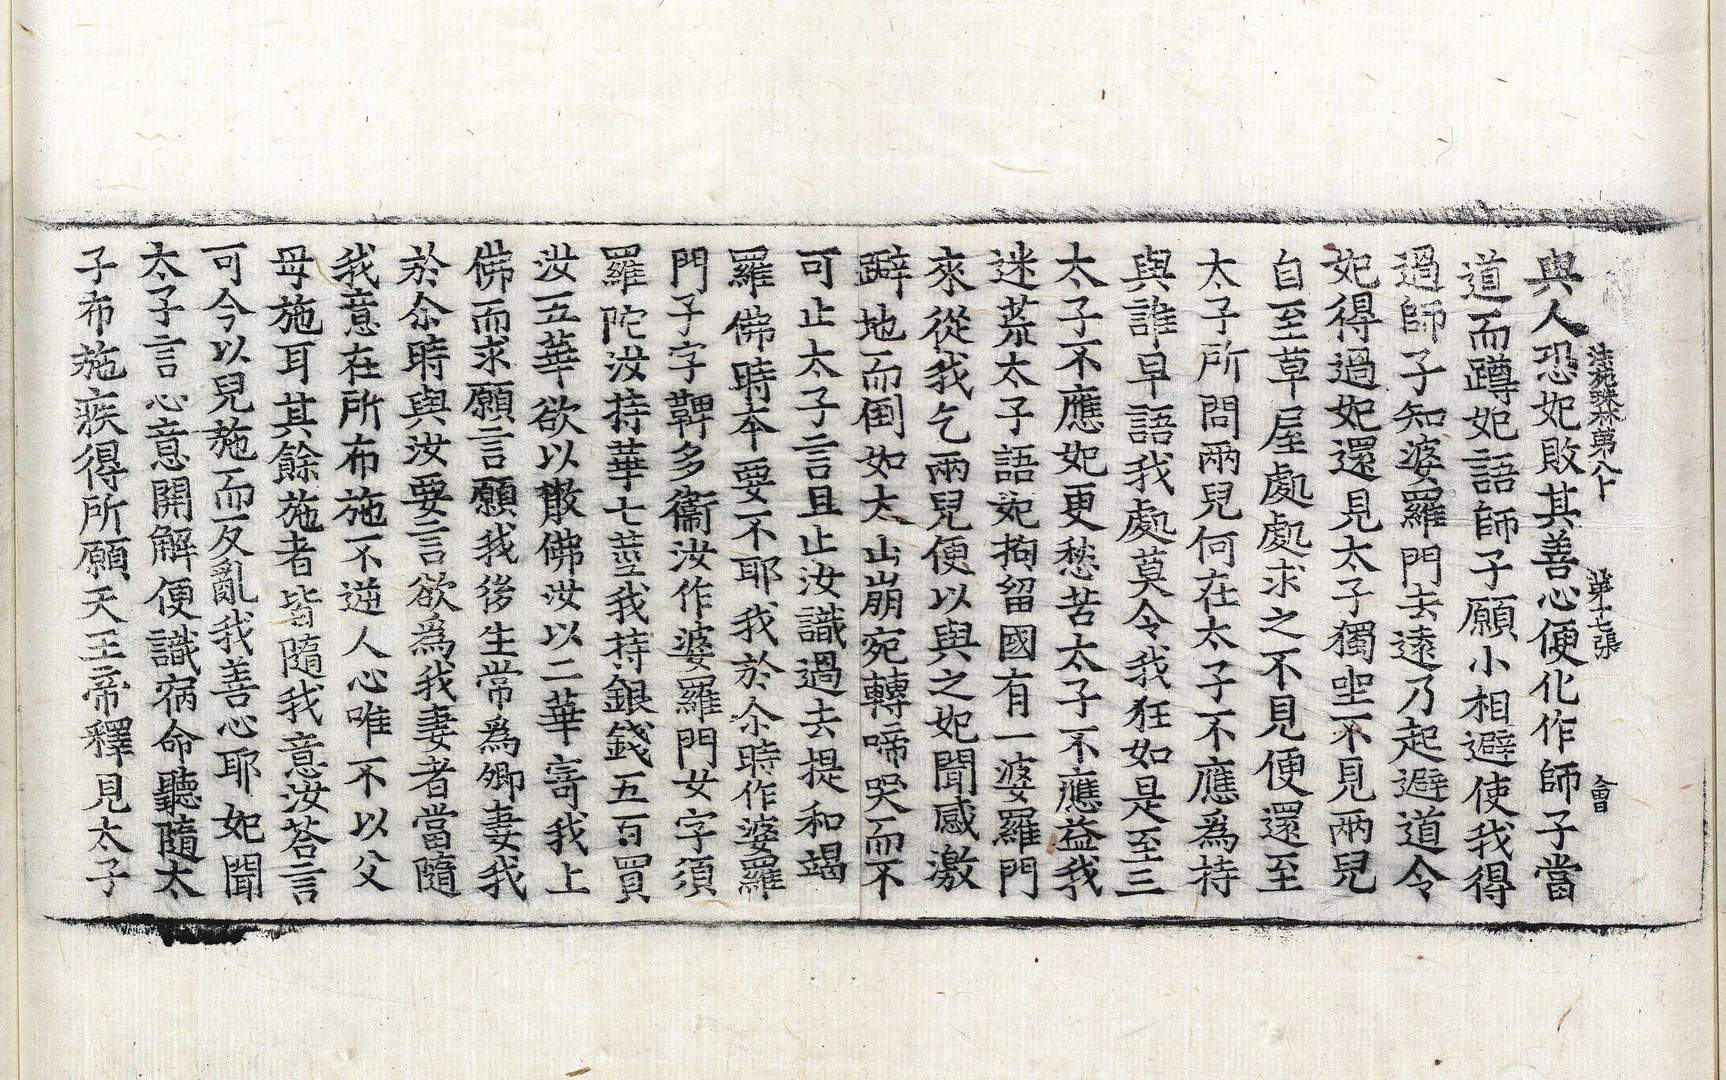 法苑珠林第八十 第十七張 會
與人恐妃敗其善心便化作師子當
道而蹲妃語師子願小相避使我得
過師子知婆羅門去遠乃起避道令
妃得過妃還見太子獨坐不見兩兒
自至草屋處處求之不見便還至
太子所問兩兒何在太子不應為持
與誰早語我處莫令我狂如是至三
太子不應妃更愁苦太子不應益我
迷荒太子語妃拘留國有一婆羅門
來從我乞兩兒便以與之妃聞感激
躃地而倒如太山崩宛轉啼哭而不
可止太子言且止汝識過去提和竭
羅佛時本要不耶我於尒時作婆羅
門子字鞞多衞汝作婆羅門女字須
羅陀汝持華七莖我持銀錢五百買
汝五華欲以散佛汝以二華寄我上
佛而求願言願我後生常爲卿妻我
於尒時與汝要言欲爲我妻者當隨
我意在所布施不逆人心唯不以父
母施耳其餘施者皆隨我意汝荅言
可今以兒施而反亂我善心耶妃聞
太子言心意開解便識宿命聽隨太
子布施疾得所願天王帝釋見太子